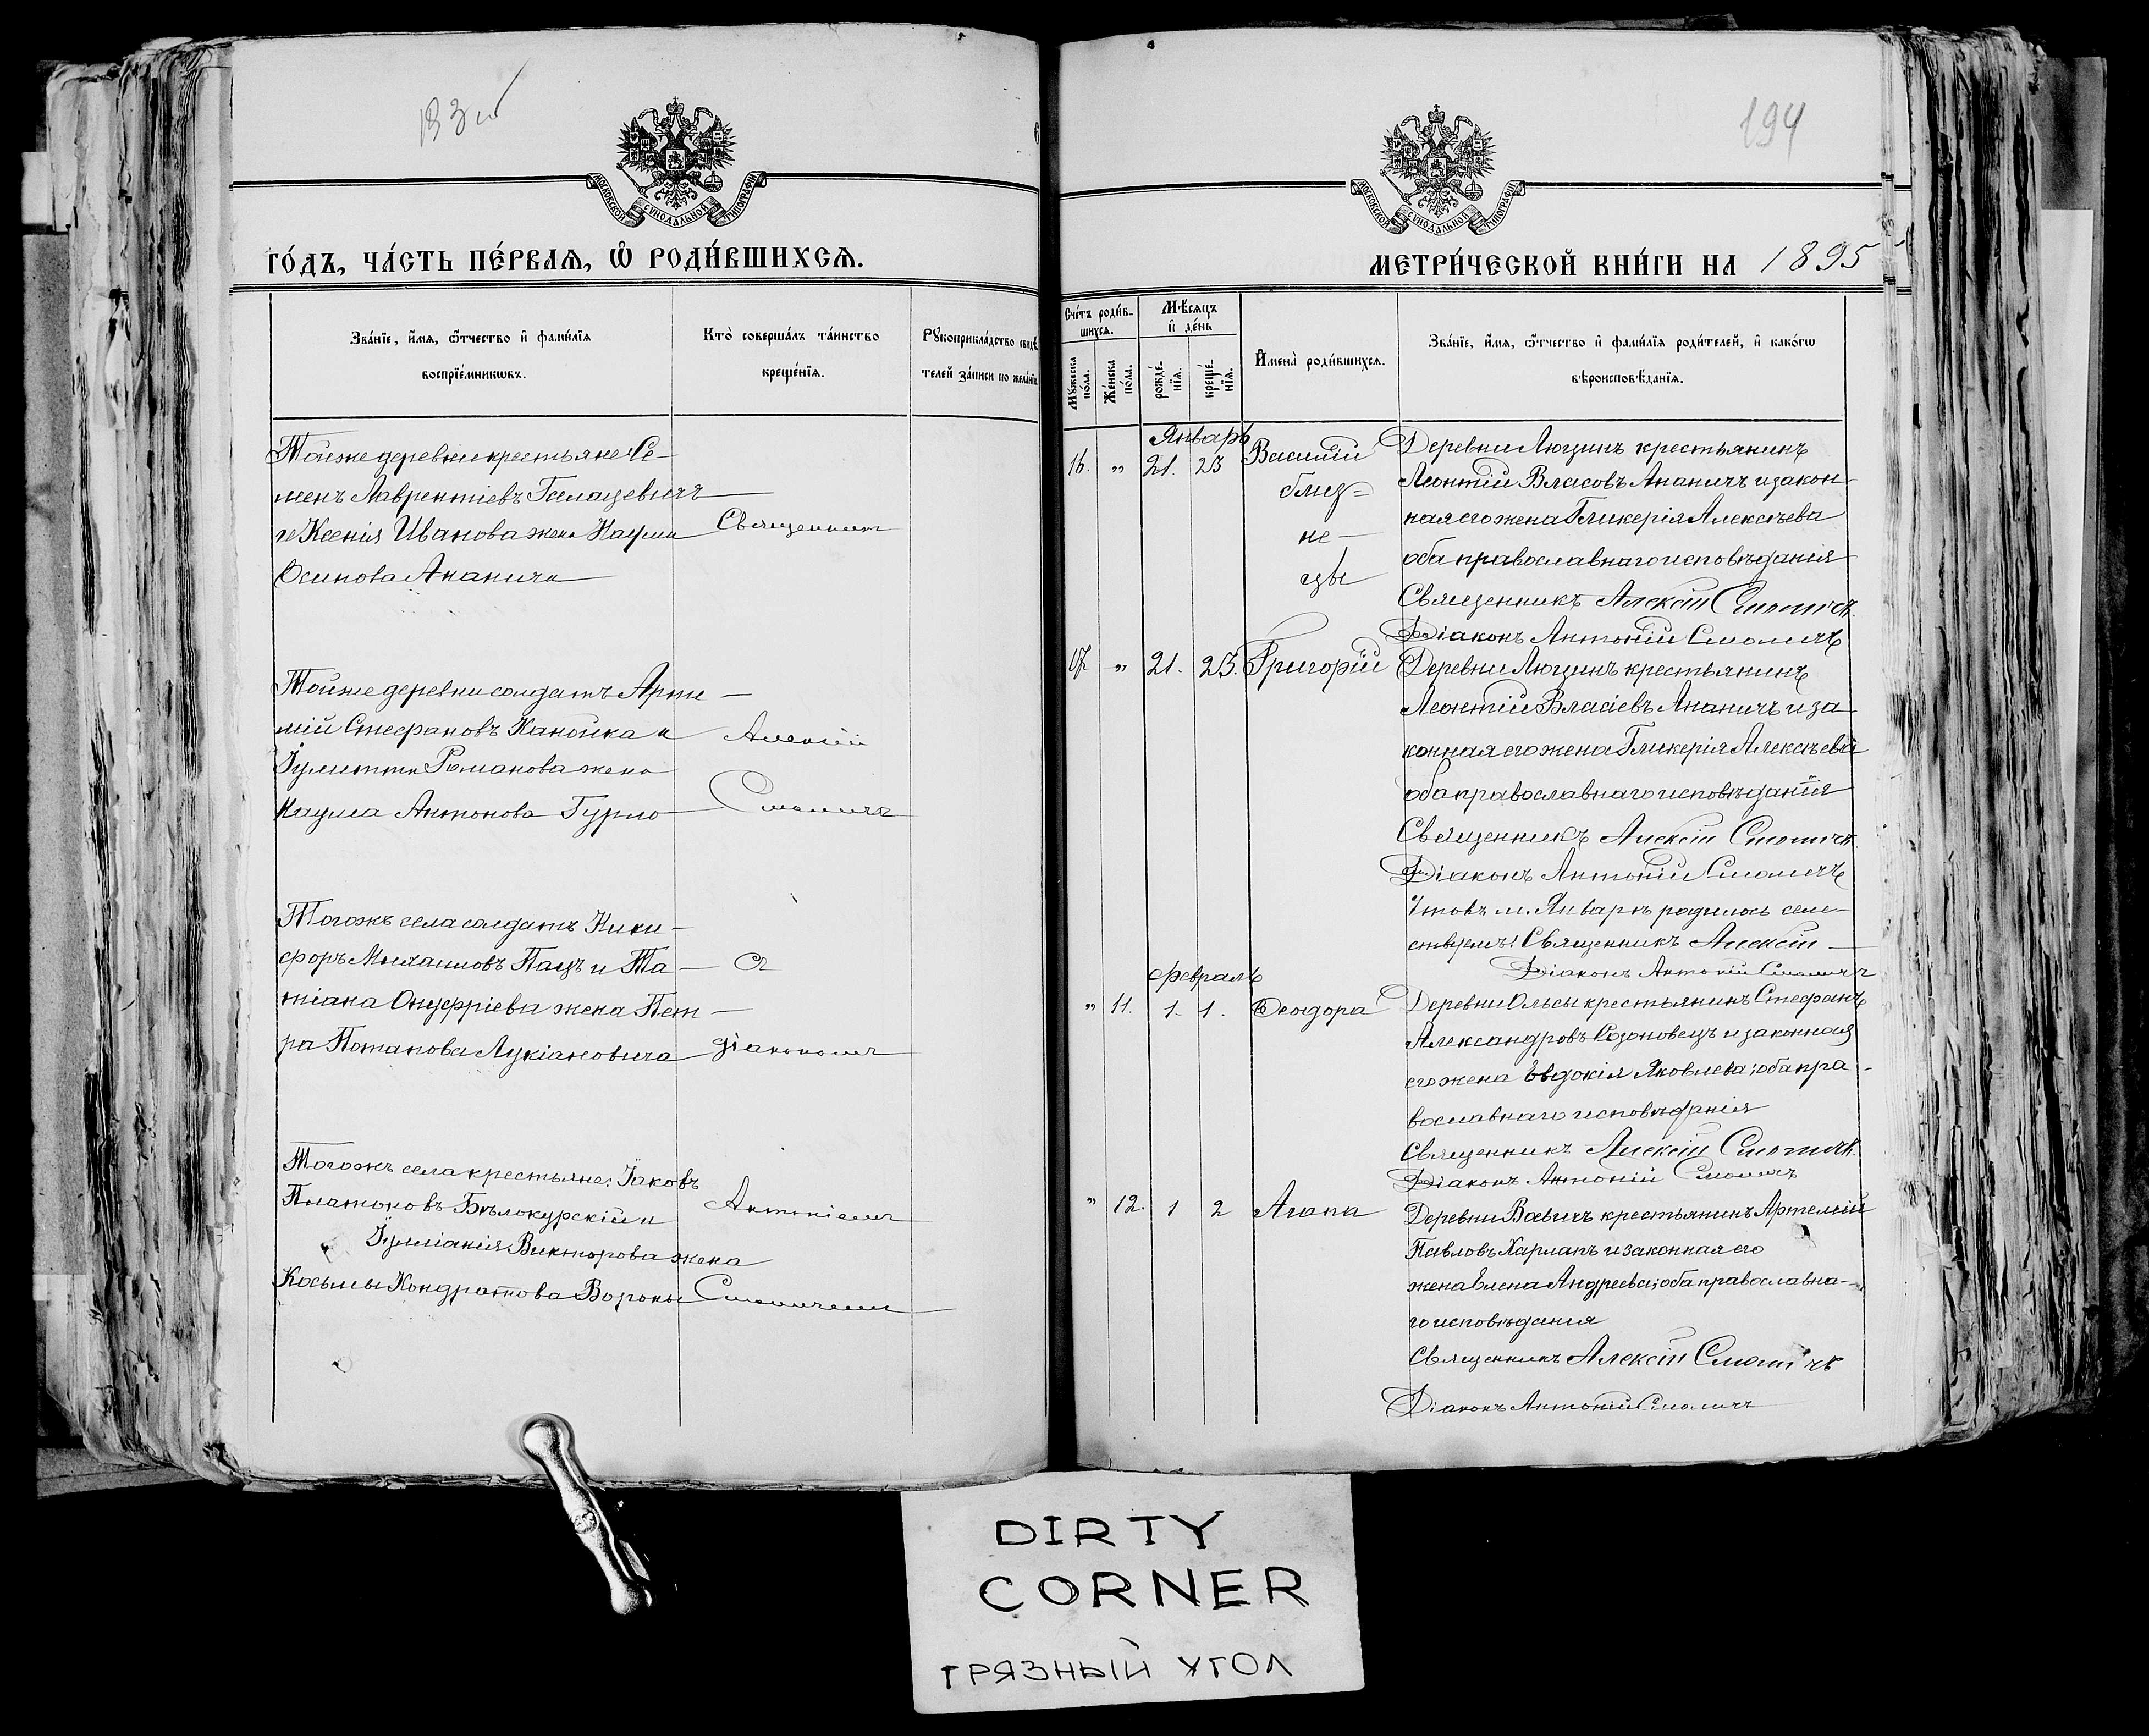 194
МОСКОВСКОЙ СУНОДАЛЬНОЙ ТИПОГРАФІИ
МОСКОВСКОЙ СУНОДАЛЬНОЙ ТИПОГРАФІИ
ГО́ДЪ, ЧА́СТЬ ПЕ́РВАѦ, Ѽ РОДИ́ВШИХСѦ.
Зва́нїе, и҆́мѧ, ѻ҆́тчество и҆ фами́лїѧ
воспрїе́мникѡвъ.
Кто̀ соверша́лъ та́инство
креще́нїѧ.
Рꙋкоприкла́дство свидѣ́
телей за́писи по жела́нїю
Тойже деревни крестьяне Се-
менъ Лаврентіевъ Галацевичъ
и Ксенія Иванова жена Наума
Осипова Ананича
Священникъ
Тойже деревни солдатъ Арте-
мій Стефановъ Канойка и
Іулитта Романова жена
Наума Антонова Гурло
Алексій
Смоличъ
Тогожъ села солдатъ Ники-
форъ Михаиловъ Пацъ и Та-
тіана Онуфріева жена Пет-
ра Потапова Лукіановича
Съ
діакономъ
Тогожъ села крестьяне: Іаковъ
Платоновъ Бѣлокурскій и
Іуліанія Викторова жена
Косьмы Кондратова Вороны
Антоніемъ
Смоличемъ
МЕТРИ́ЧЕСКОЙ КНИ́ГИ НА 1895
Сче́тъ роди́в-
шихсѧ.
Мꙋ́жеска по́ла.
Же́нска по́ла.
Мѣ́сѧцъ
и҆ де́нь
рожде́-
нїѧ.
креще́-
нїѧ.
И҆мена̀ роди́вшихсѧ.
Зва́нїе, и҆́мѧ, ѻ҆́тчество и҆ фами́лїѧ роди́телей, и҆ како́гѡ
вѣроисповѣ́данїѧ.
Январь
16. " 21. 23 Василій
близ-
не-
цы
Деревни Люцинъ крестьянинъ
Леонтій Власовъ Ананичъ и закон-
ная его жена Гликерія Алексѣева
оба православнаго исповѣданія
Священникъ Алексій Смоличъ
Діаконъ Антоній Смоличъ
17 " 21. 23. Григорій
Деревни Люцинъ крестьянинъ
Леонтій Власіевъ Ананичъ и за
конная его жена Гликерія Алексѣева
оба православнаго исповѣданія
Священникъ Алексій Смоличъ
Діаконъ Антоній Смоличъ
Итовъ м. Январѣ родилось
Священникъ Алексій
Діаконъ Антоній Смоличъ
Февраль
" 11. 1. 1. Ѳеодора
Деревни Ольсы крестьянинъ Стефанъ
Александровъ Созоновецъ и законная
его жена Евдокія Яковлева; оба пра-
вославнаго исповѣданія
Священникъ Алексій Смоличъ
Діаконъ Антоній Смоличъ
" 12. 1 2 Агапа
Деревни крестьянинъ Артемій
Павловъ Харлапъ и законная его
жена Елена Андреева; оба православна-
го исповѣданія
Священникъ Алексій Смоличъ
Діаконъ Антоній Смоличъ
DIRTY
CORNER
ГРЯЗНЫЙ УГОЛ